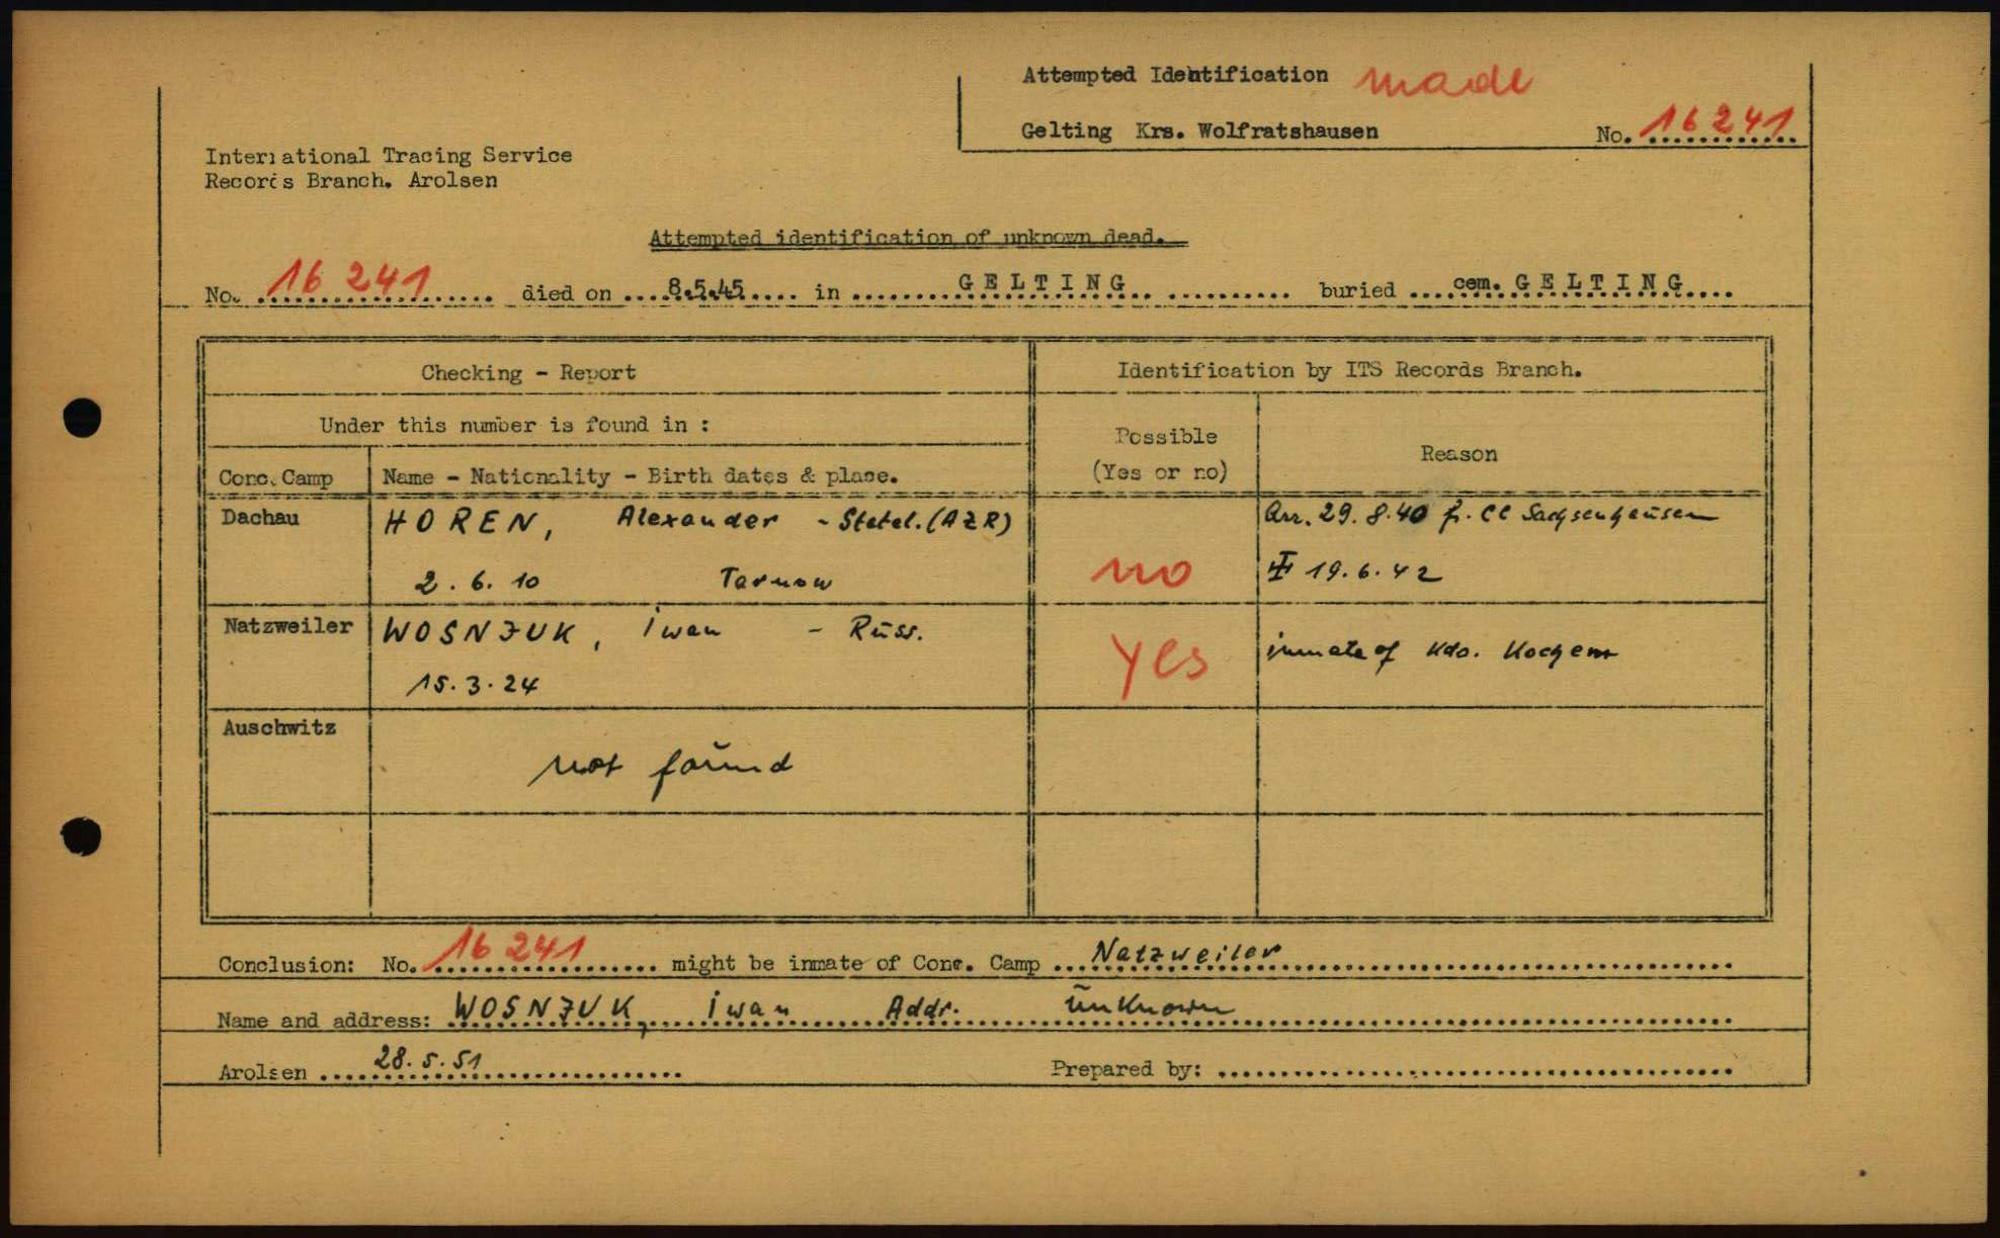 Attempted Identification made
Gelting Krs. Wolfratshausen No. 16241
International Tracing Service
Records Branch. Arolsen
Attempted identification of unknown dead.
No. 16 241 died on 8.5.45 in GELTING buried cem. GELTING
Checking - Report
Identification by ITS Records Branch.
Under this number is found in :
Possible
(Yes or no)
Reason
Conc. Camp
Name - Nationality - Birth dates & place.
Dachau
HOREN, Alexander - Statel. (AZR)
2. 6. 10 Tarnow
no
Arr. 29. 8. 40 fr. CC Sachsenhausen
19. 6. 42
Natzweiler
WOSNJUK, Iwan - Russ.
15. 3. 24
yes
inmate of Kdo. Kochem
Auschwitz
not found
Conclusion: No. 16 241 might be inmate of Conc. Camp Natzweiler
Name and address: WOSNJUK, Iwan Addr. unknown
Arolsen 28. 5. 51 Prepared by: